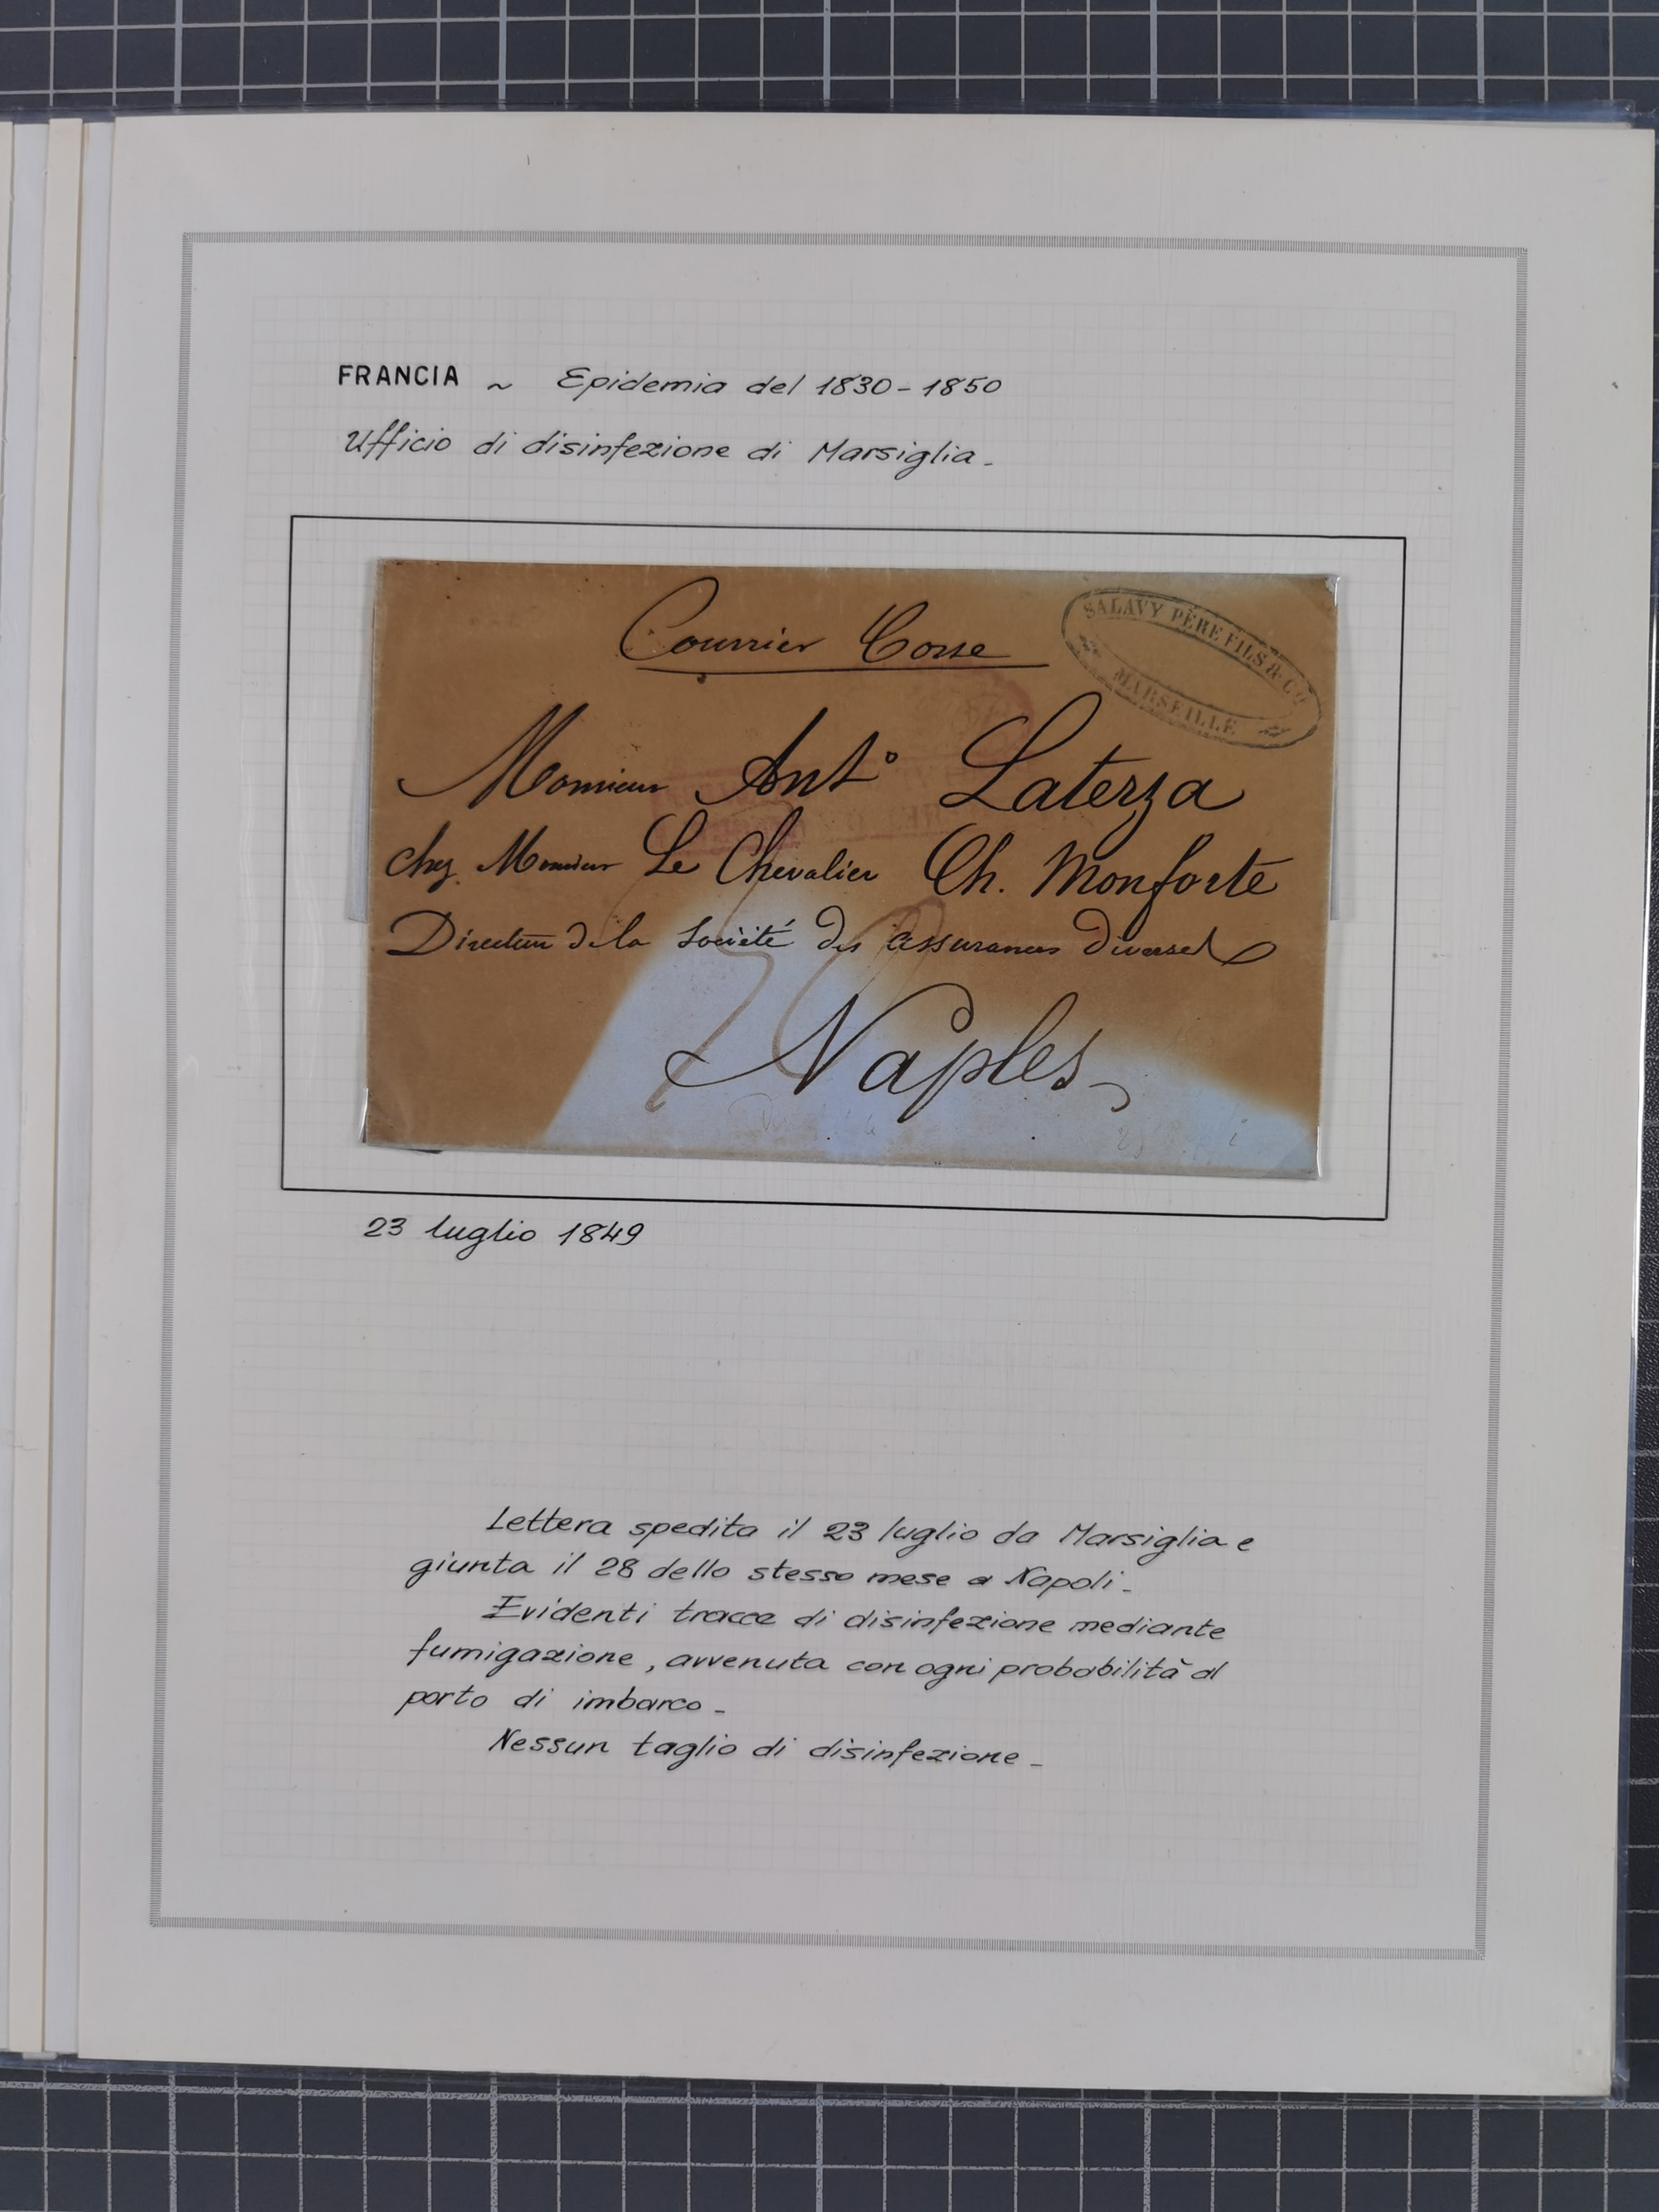 FRANCIA ~ Epidemia del 1830-1850
Ufficio di disinfezione di Marsiglia -
Courrier Corse
SALAVY PÈRE FILS & Cie
MARSEILLE
Monsieur Anto Laterza
chez Monsieur Le Chevalier Ch. Monforte
Directeur de la Société des assurances Diverses
Naples
23 luglio 1849
Lettera spedita il 23 luglio da Marsiglia e
giunta il 28 dello stesso mese a Napoli -
Evidenti tracce di disinfezione mediante
fumigazione, avvenuta con ogni probabilità al
porto di imbarco -
Nessun taglio di disinfezione -